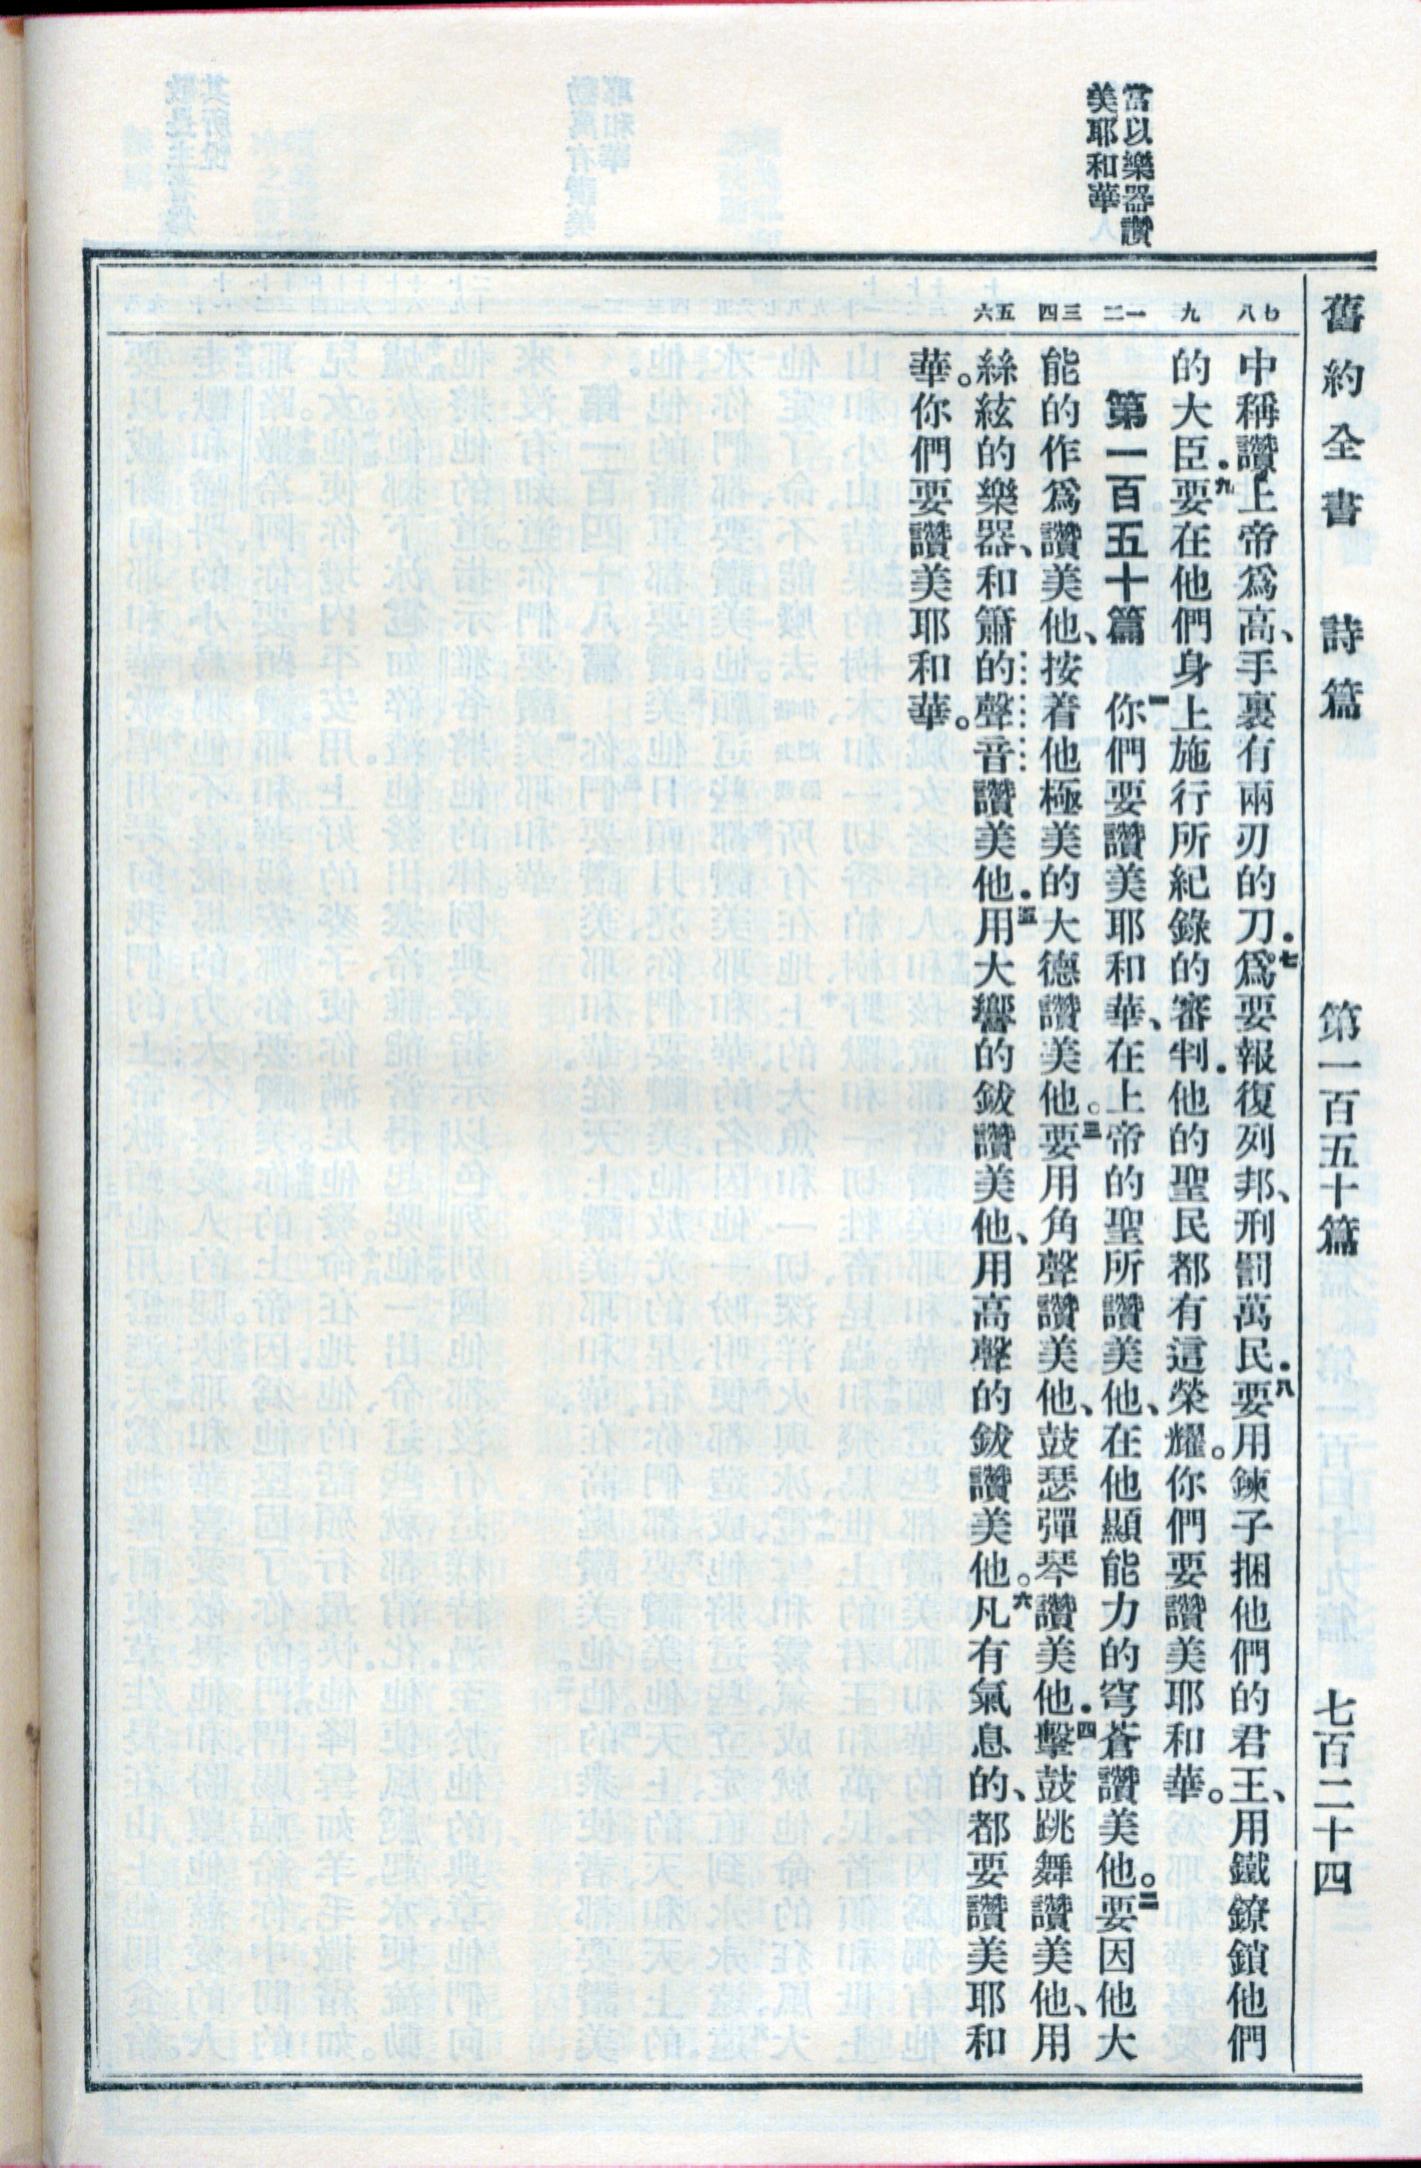 舊約全書 詩篇 第一百五十篇 七百二十四
當以樂器讚
美耶和華
七八
九
一二
三四
五六
中稱讚上帝爲高、手裏有兩刃的刀.七爲要報復列邦、刑罰萬民.八要用鍊子捆他們的君王、用鐵鐐鎖他們
的大臣.九要在他們身上施行所紀錄的審判.他的聖民都有這榮耀。你們要讚美耶和華。
第一百五十篇 一你們要讚美耶和華、在上帝的聖所讚美他、在他顯能力的穹蒼讚美他。二要因他大
能的作爲讚美他、按着他極美的大德讚美他。三要用角聲讚美他、鼓瑟彈琴讚美他.四擊鼓跳舞讚美他、用
絲絃的樂器、和簫的聲音讚美他.五用大響的鈸讚美他、用高聲的鈸讚美他。六凡有氣息的、都要讚美耶和
華。你們要讚美耶和華。